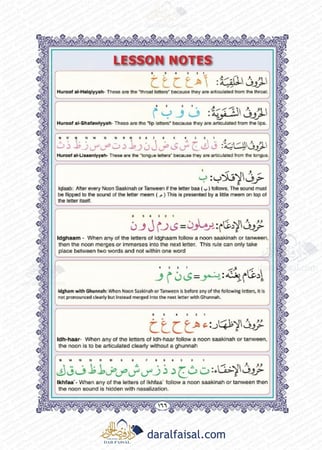 LESSON NOTES
الحُرُوفُ الحَلْقِيَّةُ: أ هـ ع ح غ خ
Huroof al-Halqiyyah- These are the "throat letters" because they are articulated from the throat.
الحُرُوفُ الشَّفَوِيَّةُ: ف و ب م
Huroof al-Shafawiyyah- These are the "lip letters" because they are articulated from the lips.
الحُرُوفُ اللِّسَانِيَّةُ: ق ك ج ش ي ض ل ن ر ط د ت ص س ز ظ ذ ث
Huroof al-Lisaaniyyah- These are the "tongue letters" because they are articulated from the tongue.
حَرْفُ الإِقْلَابِ: ب
Iqlaab: After every Noon Saakinah or Tanween if the letter baa ( ب ) follows. The sound must
be flipped to the sound of the letter meem ( م ) This is presented by a little meem on top of
the letter itself.
حُرُوفُ الإِدْغَامِ: يرملون= ي ر م ل و ن
Idghaam - When any of the letters of Idghaam follow a noon saakinah or tanween,
then the noon merges or immerses into the next letter. This rule can only take
place between two words and not within one word
إِدْغَام بِغُنَّة: ينمو= ي ن م و
Idgham with Ghunnah: When Noon Saakinah or Tanween is before any of the following letters, It is
not pronounced clearly but instead merged into the next letter with Ghunnah.
حُرُوفُ الإِظْهَارِ: ء هـ ع ح غ خ
Idh-haar- When any of the letters of Idh-haar follow a noon saakinah or tanween,
the noon is to be articulated clearly without a ghunnah
حُرُوفُ الإِخْفَاءِ: ت ث ج د ذ ز س ش ص ض ط ظ ف ق ك
Ikhfaa - When any of the letters of Ikhfaa' follow a noon saakinah or tanween then
the noon is sound is hidden with nasalization.
١٦٦
daralfaisal.com
DAR ALFAISAL